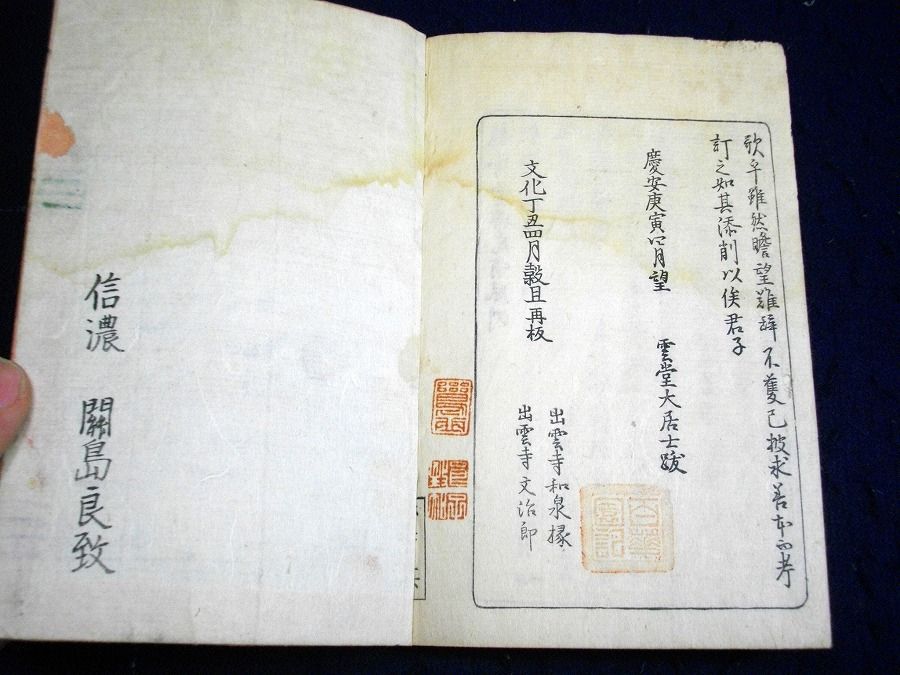 歟乎雖然瞻望難辞不獲已披求善本而考
訂之如其添削以俟君子
慶安庚寅四月望 雲堂大居士跋
文化丁丑四月穀旦再板
出雲寺和泉掾
出雲寺文治郎
信濃 關島良致